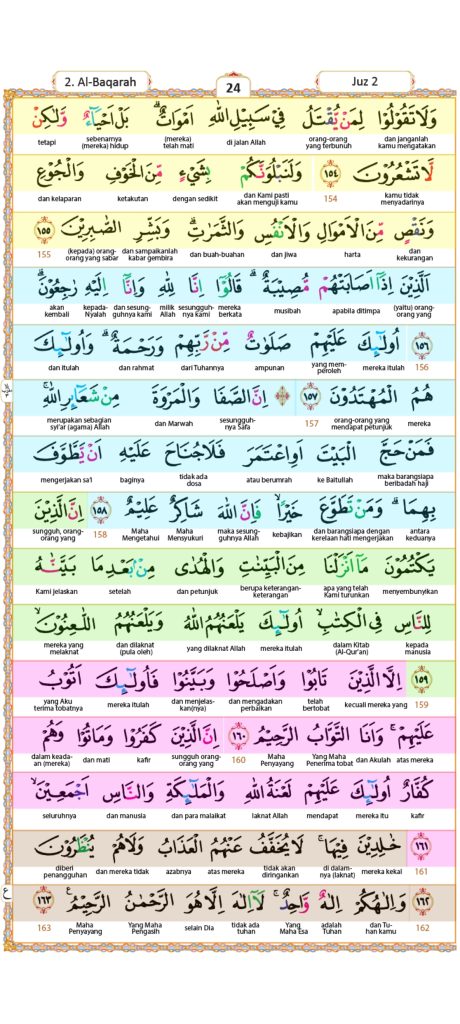 2. Al-Baqarah
24
Juz 2
وَلَا تَقُوْلُوْا لِمَنْ يُّقْتَلُ فِيْ سَبِيْلِ اللّٰهِ اَمْوَاتٌ ۗ بَلْ اَحْيَاۤءٌ وَّلٰكِنْ
dan janganlah kamu mengatakan orang-orang yang terbunuh di jalan Allah (mereka) telah mati sebenarnya (mereka) hidup tetapi
لَّا تَشْعُرُوْنَ ١٥٤ وَلَنَبْلُوَنَّكُمْ بِشَيْءٍ مِّنَ الْخَوْفِ وَالْجُوْعِ
kamu tidak menyadarinya 154 dan Kami pasti akan menguji kamu dengan sedikit ketakutan dan kelaparan
وَنَقْصٍ مِّنَ الْاَمْوَالِ وَالْاَنْفُسِ وَالثَّمَرٰتِۗ وَبَشِّرِ الصّٰبِرِيْنَ ١٥٥
dan kekurangan harta dan jiwa dan buah-buahan dan sampaikanlah kabar gembira (kepada) orang-orang yang sabar 155
اَلَّذِيْنَ اِذَآ اَصَابَتْهُمْ مُّصِيْبَةٌ ۗ قَالُوْٓا اِنَّا لِلّٰهِ وَاِنَّآ اِلَيْهِ رٰجِعُوْنَۗ
(yaitu) orang-orang yang apabila ditimpa musibah mereka berkata sesungguh-nya kami milik Allah dan sesung-guhnya kami kepada-Nyalah akan kembali
١٥٦ اُولٰۤىِٕكَ عَلَيْهِمْ صَلَوٰتٌ مِّنْ رَّبِّهِمْ وَرَحْمَةٌ ۗوَاُولٰۤىِٕكَ
156 mereka itulah yang mem-peroleh ampunan dari Tuhannya dan rahmat dan itulah
هُمُ الْمُهْتَدُوْنَ ١٥٧ ۞ اِنَّ الصَّفَا وَالْمَرْوَةَ مِنْ شَعَاۤىِٕرِ اللّٰهِ ۚ
mereka orang-orang yang mendapat petunjuk 157 sesungguh-nya Safa dan Marwah merupakan sebagian syi'ar (agama) Allah
فَمَنْ حَجَّ الْبَيْتَ اَوِ اعْتَمَرَ فَلَا جُنَاحَ عَلَيْهِ اَنْ يَّطَّوَّفَ
maka barangsiapa beribadah haji ke Baitullah atau berumrah tidak ada dosa baginya mengerjakan sa'i
بِهِمَا ۗ وَمَنْ تَطَوَّعَ خَيْرًاۙ فَاِنَّ اللّٰهَ شَاكِرٌ عَلِيْمٌ ١٥٨ اِنَّ الَّذِيْنَ
antara keduanya dan barangsiapa dengan kerelaan hati mengerjakan kebajikan maka sesung-guhnya Allah Maha Mensyukuri Maha Mengetahui 158 sungguh, orang-orang yang
يَكْتُمُوْنَ مَآ اَنْزَلْنَا مِنَ الْبَيِّنٰتِ وَالْهُدٰى مِنْۢ بَعْدِ مَا بَيَّنّٰهُ
menyembunyikan apa yang telah Kami turunkan berupa keterangan-keterangan dan petunjuk setelah Kami jelaskan
لِلنَّاسِ فِى الْكِتٰبِۙ اُولٰۤىِٕكَ يَلْعَنُهُمُ اللّٰهُ وَيَلْعَنُهُمُ اللّٰعِنُوْنَۙ
kepada manusia dalam Kitab (Al-Qur'an) mereka itulah yang dilaknat Allah dan dilaknat (pula oleh) mereka yang melaknat
١٥٩ اِلَّا الَّذِيْنَ تَابُوْا وَاَصْلَحُوْا وَبَيَّنُوْا فَاُولٰۤىِٕكَ اَتُوْبُ
159 kecuali mereka yang telah bertobat dan mengadakan perbaikan dan menjelas-kan(nya) mereka itulah yang Aku terima tobatnya
عَلَيْهِمْ ۚ وَاَنَا التَّوَّابُ الرَّحِيْمُ ١٦٠ اِنَّ الَّذِيْنَ كَفَرُوْا وَمَاتُوْا وَهُمْ
atas mereka dan Akulah Yang Maha Penerima tobat Maha Penyayang 160 sungguh orang-orang yang kafir dan mati dalam keada-an (mereka)
كُفَّارٌ اُولٰۤىِٕكَ عَلَيْهِمْ لَعْنَةُ اللّٰهِ وَالْمَلٰۤىِٕكَةِ وَالنَّاسِ اَجْمَعِيْنَۙ
kafir mereka itu mendapat laknat Allah dan para malaikat dan manusia seluruhnya
١٦١ خٰلِدِيْنَ فِيْهَا ۚ لَا يُخَفَّفُ عَنْهُمُ الْعَذَابُ وَلَا هُمْ يُنْظَرُوْنَ
161 mereka kekal di dalam-nya (laknat) tidak akan diringankan atas mereka azabnya dan mereka tidak diberi penangguhan
١٦٢ وَاِلٰهُكُمْ اِلٰهٌ وَّاحِدٌۚ لَآ اِلٰهَ اِلَّا هُوَ الرَّحْمٰنُ الرَّحِيْمُ ١٦٣
162 dan Tu-han kamu adalah Tuhan Yang Maha Esa tidak ada tuhan selain Dia Yang Maha Pengasih Maha Penyayang 163
ع